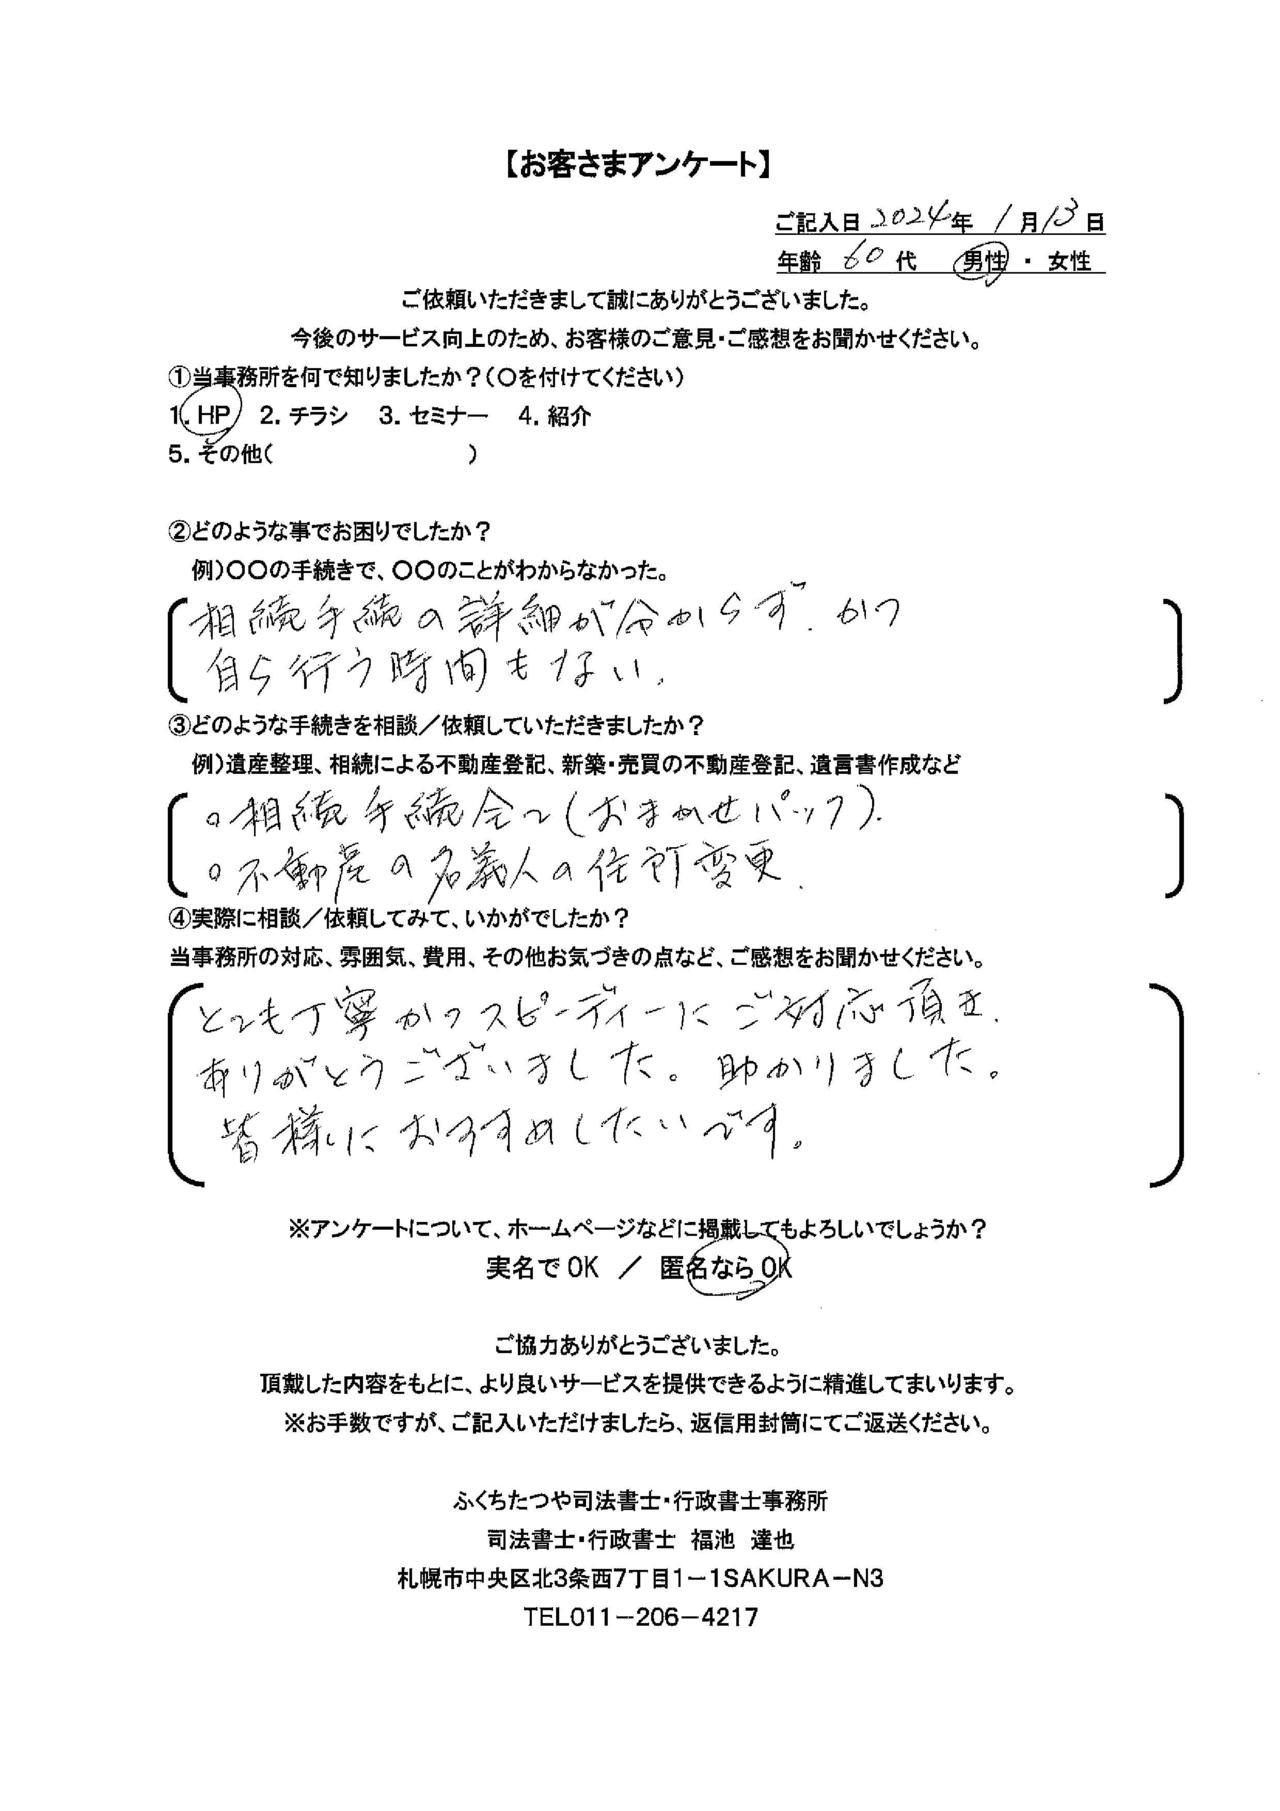 【お客さまアンケート】
ご記入日 2024年 1月13日
年齢 60代 男性・女性
ご依頼いただきまして誠にありがとうございました。
今後のサービス向上のため、お客様のご意見・ご感想をお聞かせください。
①当事務所を何で知りましたか？(〇を付けてください)
1. HP 2. チラシ 3. セミナー 4. 紹介
5. その他( )
②どのような事でお困りでしたか？
例)〇〇の手続きで、〇〇のことがわからなかった。
相続手続の詳細が分からず、かつ
自ら行う時間もない。
③どのような手続きを相談／依頼していただきましたか？
例)遺産整理、相続による不動産登記、新築・売買の不動産登記、遺言書作成など
○相続手続全て(おまかせパック)、
○不動産の名義人の住所変更、
④実際に相談／依頼してみて、いかがでしたか？
当事務所の対応、雰囲気、費用、その他お気づきの点など、ご感想をお聞かせください。
とても丁寧かつスピーディーにご対応頂き、
ありがとうございました。助かりました。
皆様におすすめしたいです。
※アンケートについて、ホームページなどに掲載してもよろしいでしょうか？
実名でOK ／ 匿名ならOK
ご協力ありがとうございました。
頂戴した内容をもとに、より良いサービスを提供できるように精進してまいります。
※お手数ですが、ご記入いただけましたら、返信用封筒にてご返送ください。
ふくちたつや司法書士・行政書士事務所
司法書士・行政書士 福池 達也
札幌市中央区北3条西7丁目1－1SAKURA－N3
TEL011－206－4217